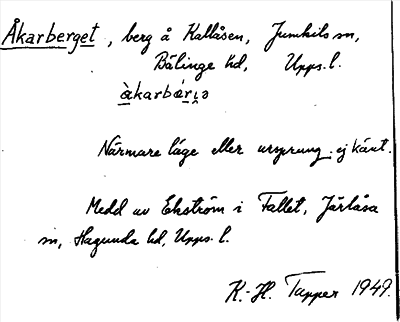 Åkarberget, berg å Kallåsen, Jumkils sn,
Bälinge hd, Upps. l.
àkarbǽri̯ə
Närmare läge eller ursprung ej känt.
Medd av Ekström i Fallet, Järlåsa
sn, Hagunda hd, Upps. l.
K.-H. Tapper 1949.